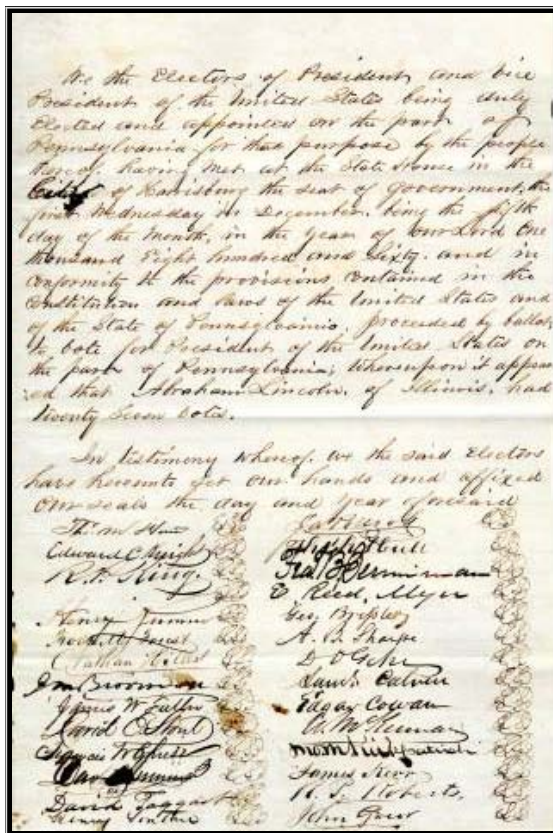 We the Electors of President and Vice
President of the United States being duly
Elected and appointed on the part of
Pennsylvania for that purpose by the people
thereof, having met at the State House in the
of Harrisburg the seat of Government, the
first Wednesday in December, being the fifth
day of the Month, in the year of our Lord One
thousand Eight hundred and Sixty, and in
conformity to the provisions contained in the
Constitution and Laws of the United States and
of the State of Pennsylvania, proceeded by ballot
to vote for President of the United States on
the part of Pennsylvania; whereupon it appear
ed that Abraham Lincoln, of Illinois, had
twenty seven votes.
In testimony whereof, we the said Electors
have hereunto set our hands and affixed
our seals the day and year aforesaid
Edward C Knight
R. P. King.
Henry
E Reed Myer
Geo. Bressler
A. B. Sharpe
Jno Brooman
James W Fuller
Edgar Cowan
David E Stout
Francis W Christ
David Taggart
James Kerr
R. P. Roberts
John Greer